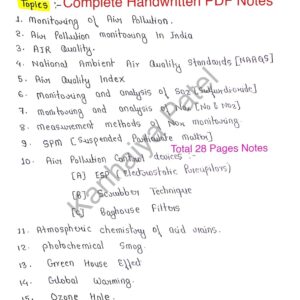 Topics :- Complete Handwritten PDF Notes
1. Monitoring of Air Pollution.
2. Air Pollution monitoring in India
3. AIR Quality.
4. National Ambient Air Quality Standards [NAAQS]
5. Air Quality Index
6. Monitoring and analysis of SO2 [Sulfurdioxide]
7. monitoring and analysis of NOx [No & NO2]
8. measurement methods of NOx monitoring.
9. SPM [Suspended Particulate matter]
Total 28 Pages Notes
10. Air Pollution Control devices :-
[A] ESP [Electrostatic Precipitators]
[B] Scrubber Technique
[C] Baghouse Filters
11. Atmospheric chemistry of acid rains.
12. photochemical Smog.
13. Green House Effect
14. Global Warming.
15. Ozone Hole.
Kanhaiya Patel